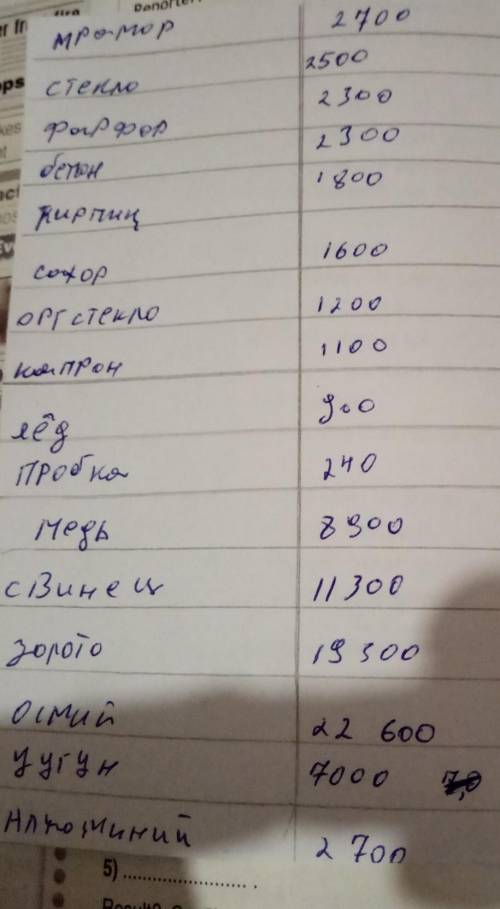 мрамор 2700
стекло 2500
фарфор 2300
бетон 2300
кирпич 1800
сахор 1600
оргстекло 1200
капрон 1100
лёд 900
пробка 240
медь 8900
свинец 11300
золото 19300
осмий 22 600
чугун 7000
Алюминий 2 700
5)